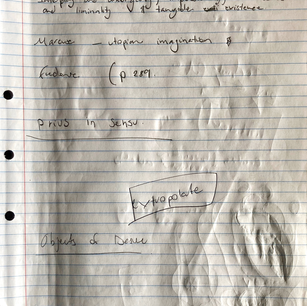 and liminality of tangible existence
Marcuse - utopian imagination &
Evidence (p. 289
prius in sensu.
extrapolate
Objects of Desire